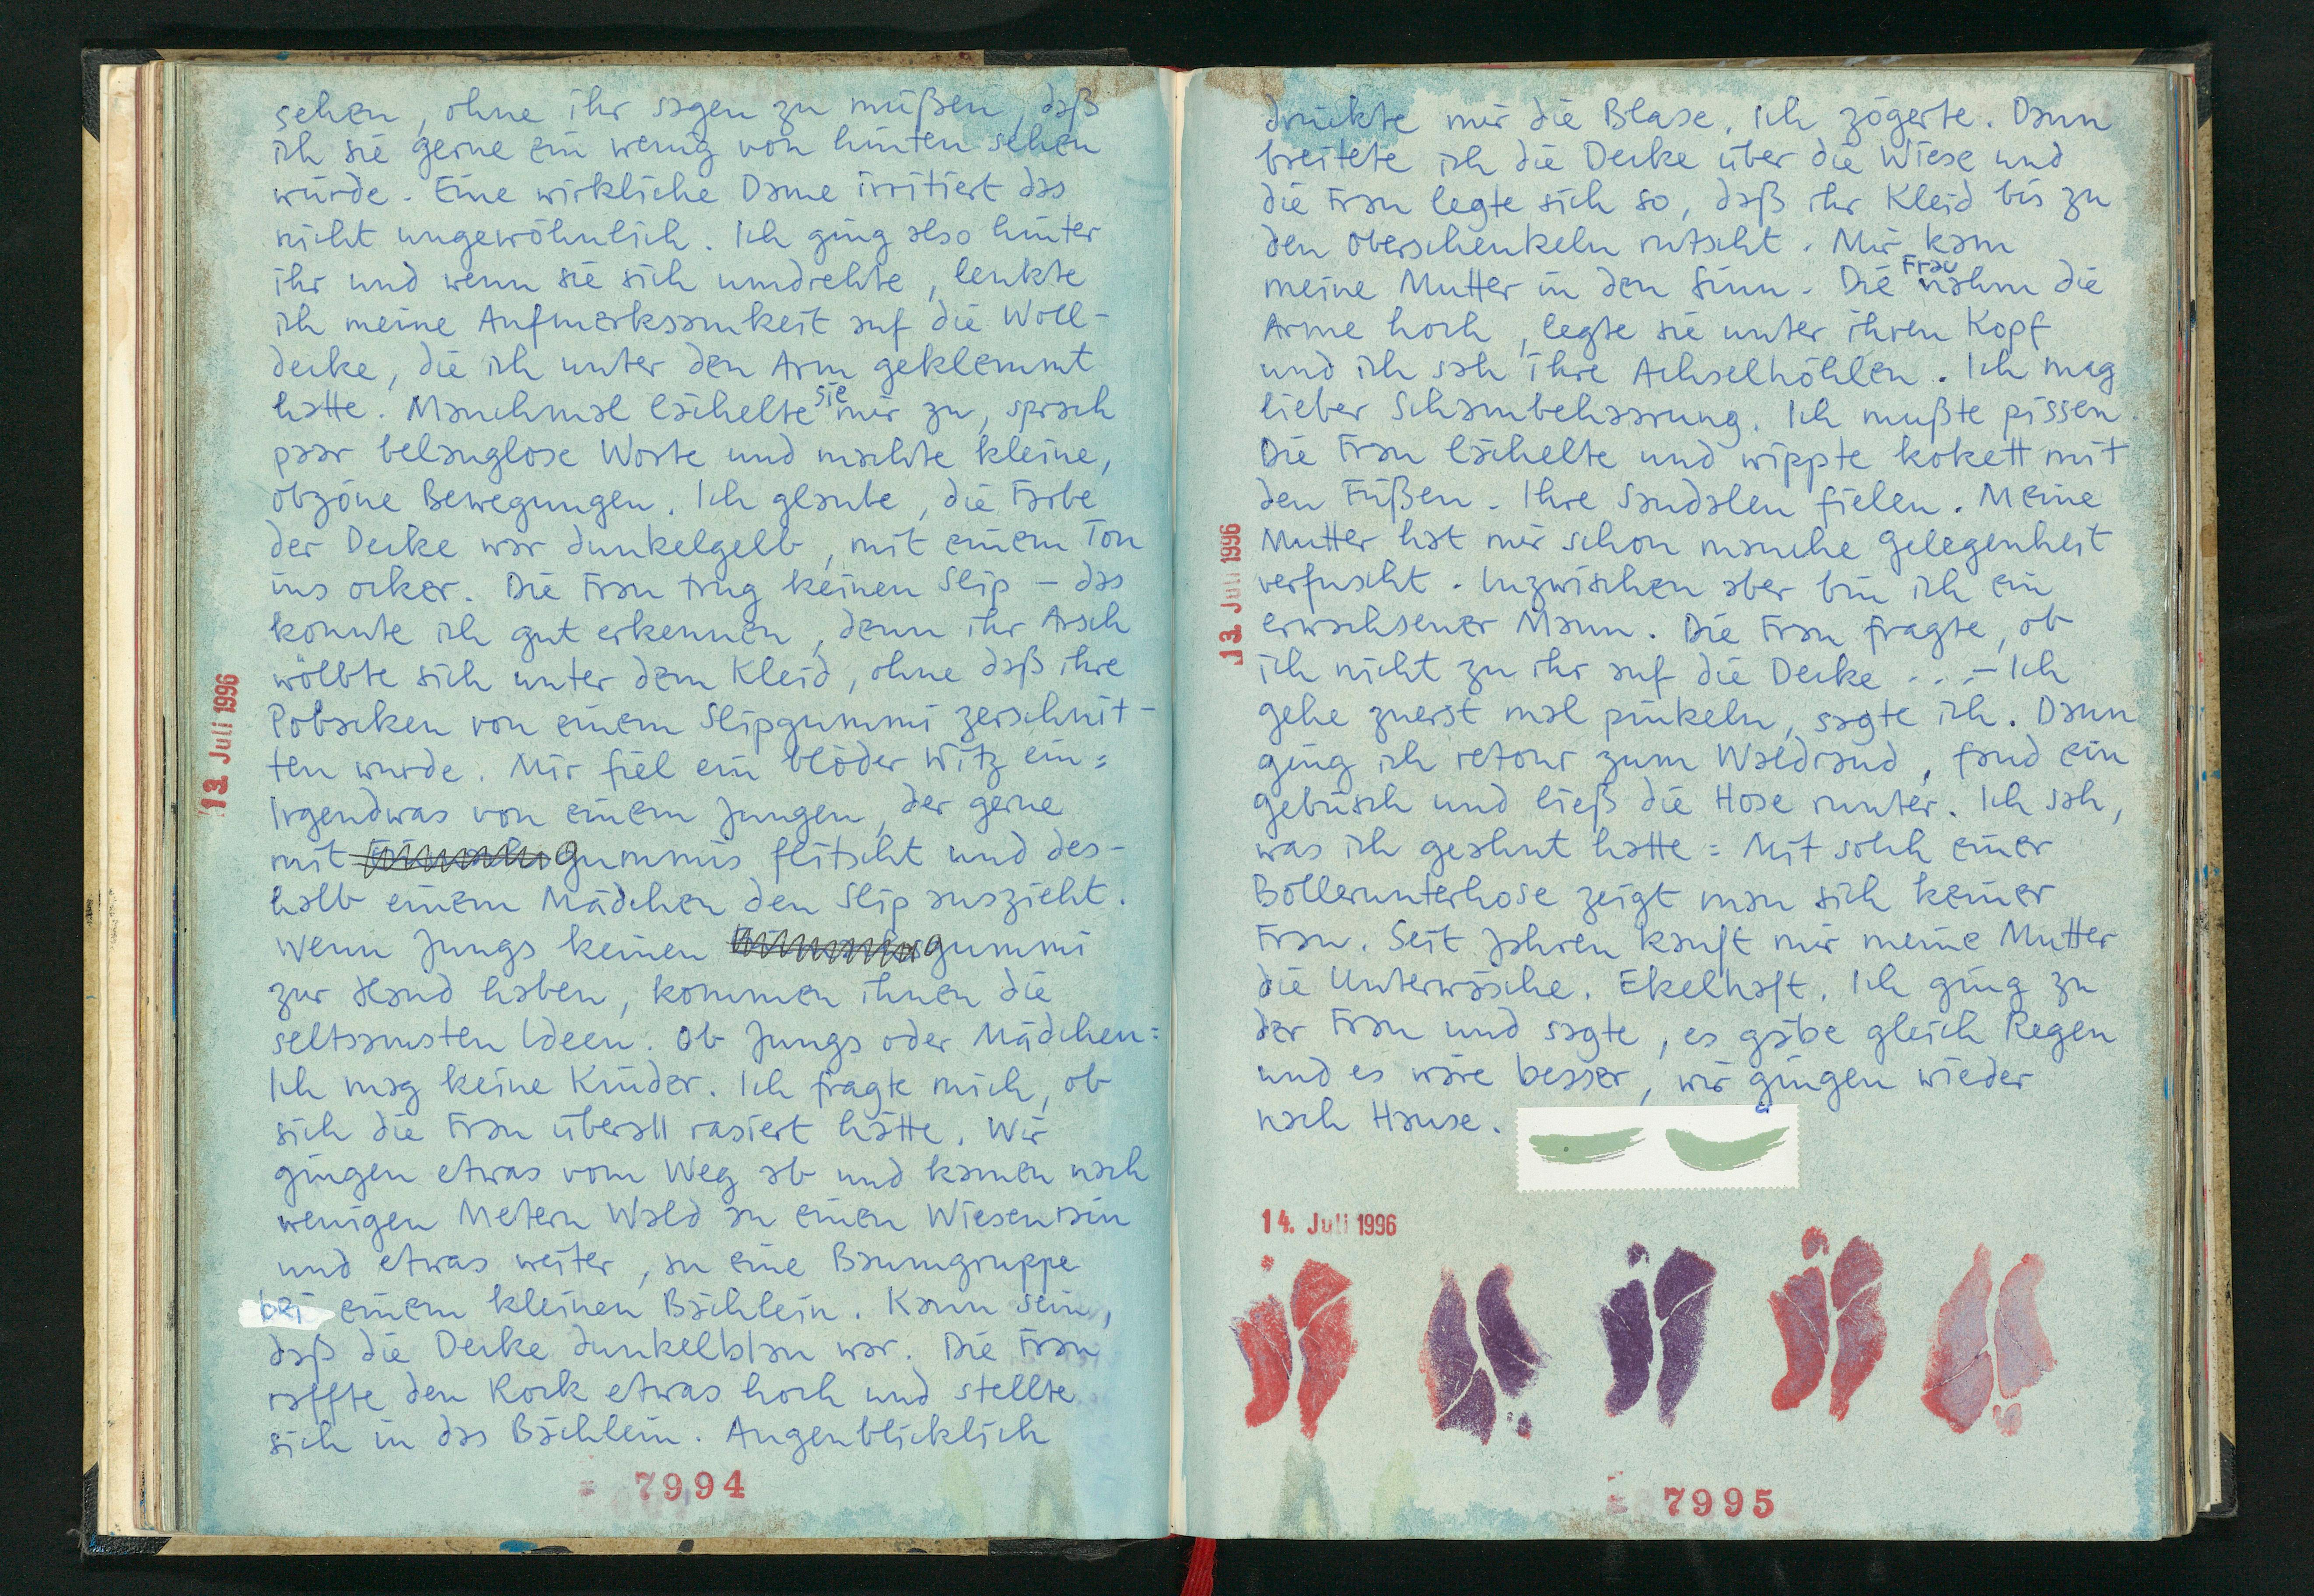 sehen, ohne ihr sagen zu müßen, daß
ich sie gerne ein wenig von hinten sehen
würde. Eine wirkliche Dame irritiert das
nicht ungewöhnlich. Ich ging also hinter
ihr und wenn sie sich umdrehte, lenkte
ich meine Aufmerksamkeit auf die Woll-
decke, die ich unter den Arm geklemmt
hatte. Manchmal lächelte sie mir zu, sprach
paar belanglose Worte und machte kleine,
obzöne Bewegungen. Ich glaube, die Farbe
der Decke war dunkelgelb, mit einem Ton
ins ocker. Die Frau trug keinen Slip – das
konnte ich gut erkennen, denn ihr Arsch
wölbte sich unter dem Kleid, ohne daß ihre
Pobacken von einem Slipgummi zerschnit-
ten wurde. Mir fiel ein blöder Witz ein:
Irgendwas von einem Jungen, der gerne
mit gummis flitscht und des-
halb einem Mädchen den Slip auszieht.
Wenn Jungs keinen gummi
zur Hand haben, kommen ihnen die
seltsamsten Ideen. Ob Jungs oder Mädchen:
Ich mag keine Kinder. Ich fragte mich, ob
sich die Frau überall rasiert hätte. Wir
gingen etwas vom Weg ab und kamen nach
wenigen Metern Wald an einen Wiesenrain
und etwas weiter, an eine Baumgruppe
bei einem kleinen Bächlein. Kann sein,
daß die Decke dunkelblau war. Die Frau
raffte den Rock etwas hoch und stellte
sich in das Bächlein. Augenblicklich
13. Juli 1996
7994
drückte mir die Blase. Ich zögerte. Dann
breitete ich die Decke über die Wiese und
die Frau legte sich so, daß ihr Kleid bis zu
den Oberschenkeln rutscht. Mir kam
meine Mutter in den Sinn. Die Frau nahm die
Arme hoch, legte sie unter ihren Kopf
und ich sah ihre Achselhöhlen. Ich mag
lieber Schambehaarung. Ich mußte pissen.
Die Frau lächelte und wippte kokett mit
den Füßen. Ihre Sandalen fielen. Meine
Mutter hat mir schon manche Gelegenheit
verfuscht. Inzwischen aber bin ich ein
erwachsener Mann. Die Frau fragte, ob
ich nicht zu ihr auf die Decke ... – Ich
gehe zuerst mal pinkeln, sagte ich. Dann
ging ich retour zum Waldrand, fand ein
gebüsch und ließ die Hose runter. Ich sah,
was ich geahnt hatte: Mit solch einer
Bollerunterhose zeigt man sich keiner
Frau. Seit Jahren kauft mir meine Mutter
die Unterwäsche. Ekelhaft. Ich ging zu
der Frau und sagte, es gäbe gleich Regen
und es wäre besser, wir gingen wieder
nach Hause.
13. Juli 1996
14. Juli 1996
7995